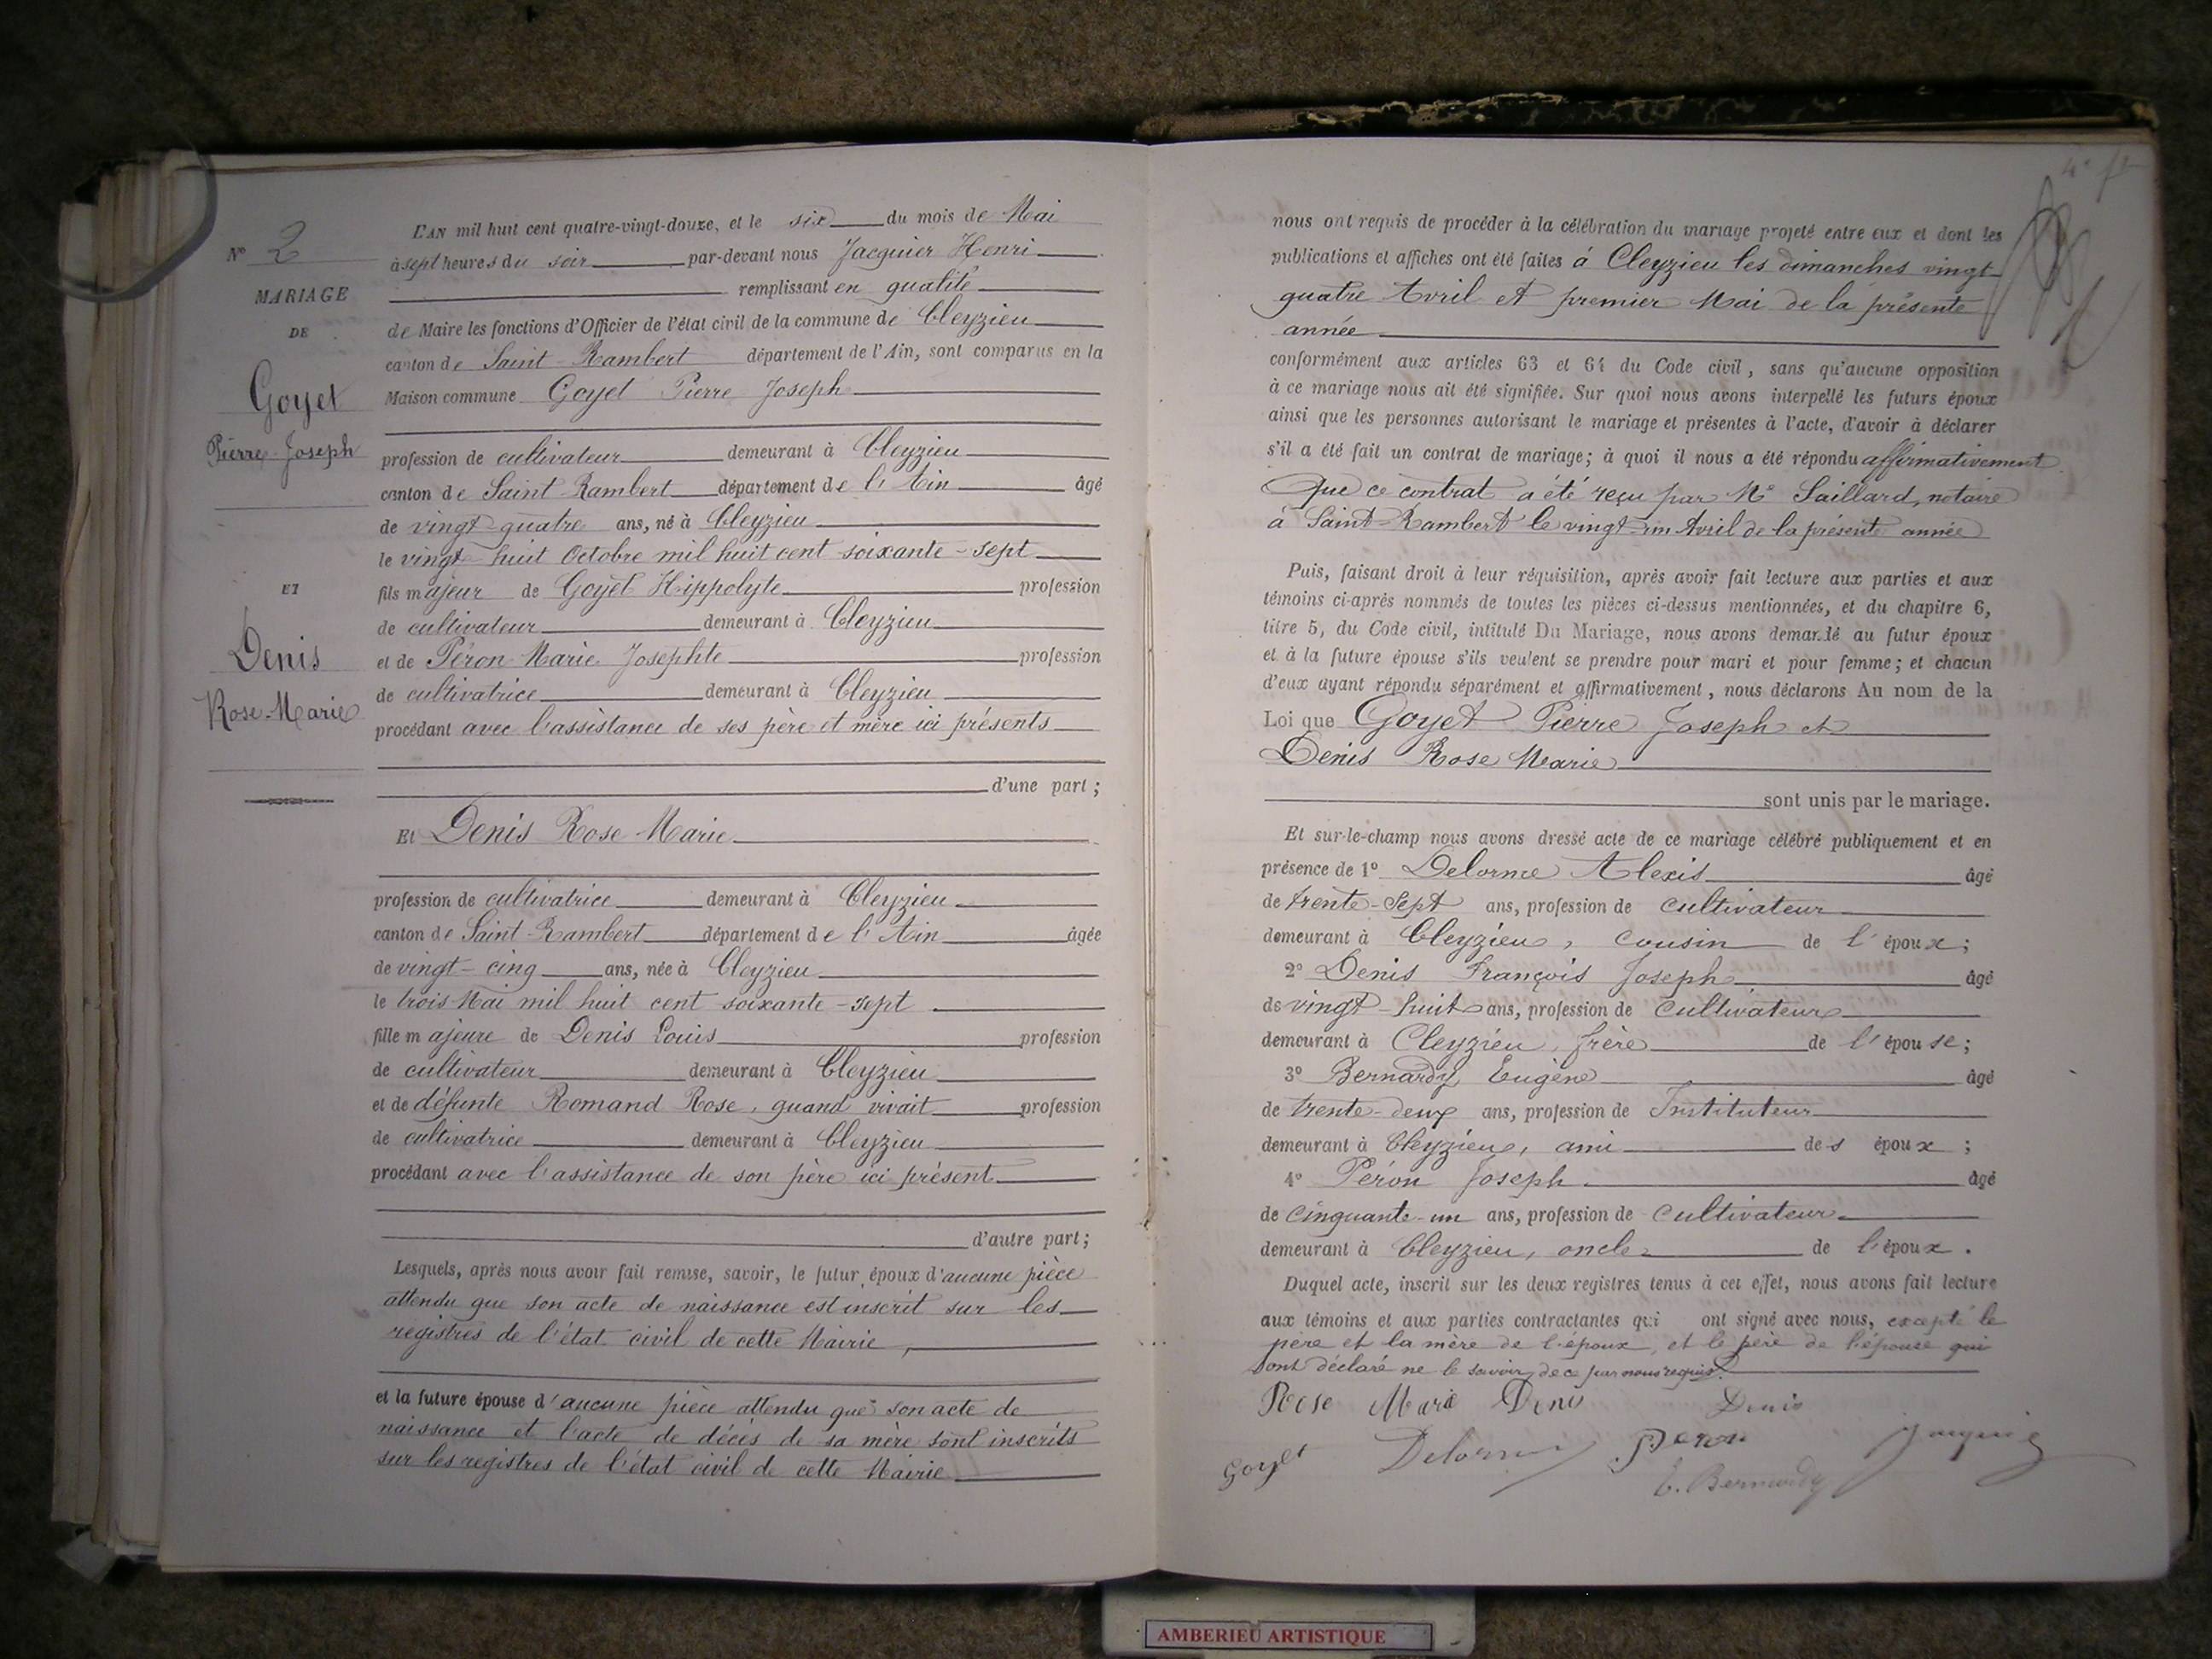 N° 2
MARIAGE
DE
Goyet
Pierre-Joseph
ET
Denis
Rose-Marie
L'AN mil huit cent quatre-vingt-douze, et le six du mois de Mai
à sept heures du soir par-devant nous Jacquier Henri
remplissant en qualité
de Maire les fonctions d'Officier de l'état civil de la commune de Cleyzieu
canton de Saint-Rambert département de l'Ain, sont comparus en la
Maison commune Goyet Pierre Joseph
profession de cultivateur demeurant à Cleyzieu
canton de Saint-Rambert département de l'Ain âgé
de vingt-quatre ans, né à Cleyzieu
le vingt-huit Octobre mil huit cent soixante-sept
fils majeur de Goyet Hippolyte profession
de cultivateur demeurant à Cleyzieu
et de Péron Marie Josephte profession
de cultivatrice demeurant à Cleyzieu
procédant avec l'assistance de ses père et mère ici présents
d'une part ;
Et Denis Rose Marie
profession de cultivatrice demeurant à Cleyzieu
canton de Saint-Rambert département de l'Ain âgée
de vingt-cinq ans, née à Cleyzieu
le trois Mai mil huit cent soixante-sept
fille majeure de Denis Louis profession
de cultivateur demeurant à Cleyzieu
et de défunte Romand Rose, quand vivait profession
de cultivatrice demeurant à Cleyzieu
procédant avec l'assistance de son père ici présent
d'autre part ;
Lesquels, après nous avoir fait remise, savoir, le futur époux d'aucune pièce
attendu que son acte de naissance est inscrit sur les
registres de l'état civil de cette Mairie,
et la future épouse d'aucune pièce attendu que son acte de
naissance et l'acte de décès de sa mère sont inscrits
sur les registres de l'état civil de cette Mairie
nous ont requis de procéder à la célébration du mariage projeté entre eux et dont les
publications et affiches ont été faites à Cleyzieu les dimanches vingt-
quatre Avril et premier Mai de la présente
année
conformément aux articles 63 et 64 du Code civil, sans qu'aucune opposition
à ce mariage nous ait été signifiée. Sur quoi nous avons interpellé les futurs époux
ainsi que les personnes autorisant le mariage et présentes à l'acte, d'avoir à déclarer
s'il a été fait un contrat de mariage ; à quoi il nous a été répondu affirmativement
Que ce contrat a été reçu par Me Saillard, notaire
à Saint-Rambert le vingt-un Avril de la présente année
Puis, faisant droit à leur réquisition, après avoir fait lecture aux parties et aux
témoins ci-après nommés de toutes les pièces ci-dessus mentionnées, et du chapitre 6,
titre 5, du Code civil, intitulé Du Mariage, nous avons demandé au futur époux
et à la future épouse s'ils veulent se prendre pour mari et pour femme ; et chacun
d'eux ayant répondu séparément et affirmativement, nous déclarons Au nom de la
Loi que Goyet Pierre Joseph et
Denis Rose Marie
sont unis par le mariage.
Et sur-le-champ nous avons dressé acte de ce mariage célébré publiquement et en
présence de 1° Delorme Alexis âgé
de trente-sept ans, profession de cultivateur
demeurant à Cleyzieu, cousin de l'époux ;
2° Denis François Joseph âgé
de vingt-huit ans, profession de cultivateur
demeurant à Cleyzieu, frère de l'épouse ;
3° Bernardy Eugène âgé
de trente-deux ans, profession de Instituteur
demeurant à Cleyzieu, ami des époux ;
4° Péron Joseph âgé
de cinquante-un ans, profession de cultivateur
demeurant à Cleyzieu, oncle de l'époux.
Duquel acte, inscrit sur les deux registres tenus à cet effet, nous avons fait lecture
aux témoins et aux parties contractantes qui ont signé avec nous, excepté le
père et la mère de l'époux, et le père de l'épouse qui
ont déclaré ne le savoir, de ce par nous requis.
Rose Marie Denis Denis
Goyet Delorme Peron Jacquier
E. Bernardy
AMBERIEU ARTISTIQUE